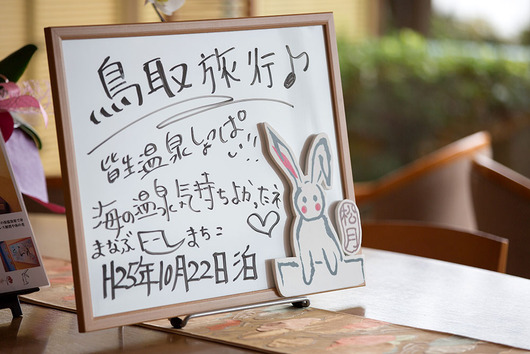 鳥取旅行♪
皆生温泉しょっぱい!!
海の温泉気持ちよかったネ
まなぶ まちこ ♡
H25年10月22日泊
松月